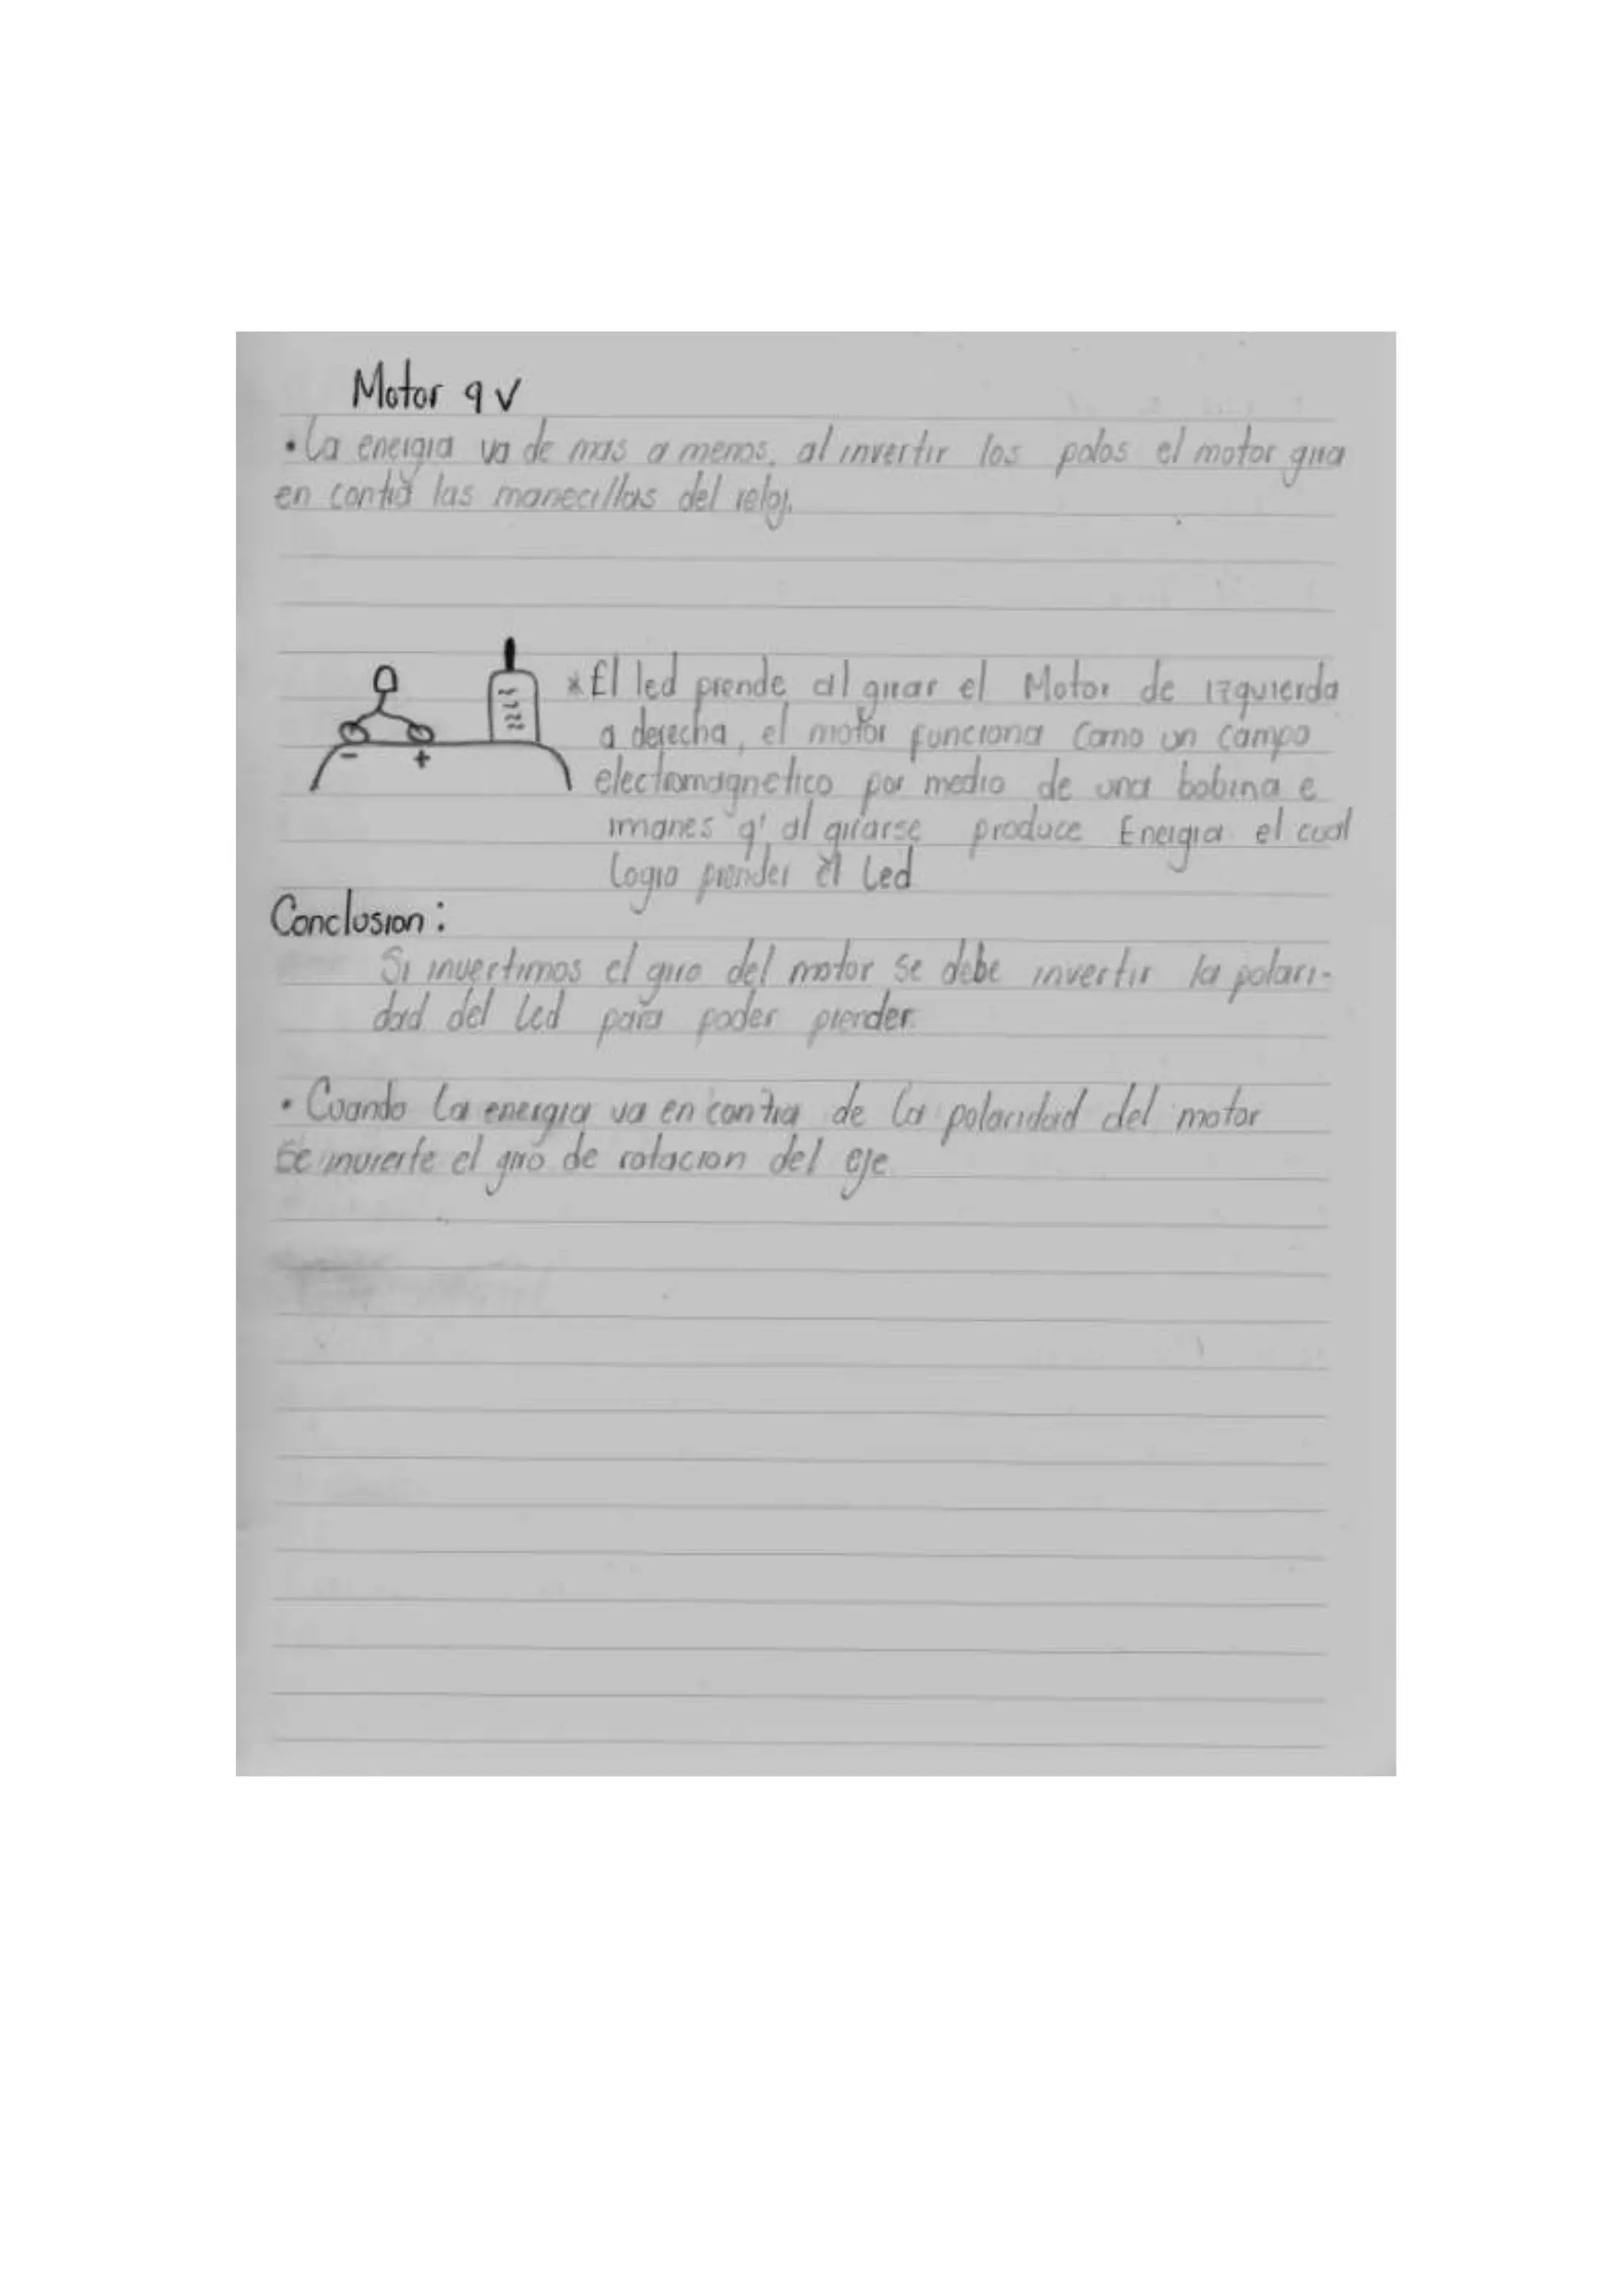 Motor 9V
• La energia va de mas a menos, al invertir los polos el motor gira
en contra las manecillas del reloj.
* El led prende al girar el Motor de izquierda
a derecha, el motor funciona como un campo
- +
electromagnetico por medio de una bobina e
imanes q' al girarse produce Energia el cual
logro prender el led
Conclusion:
Si invertimos el giro del motor se debe invertir la polari-
dad del led para poder prender.
• Cuando la energia va en contra de la polaridad del motor
se invierte el giro de rotacion del eje